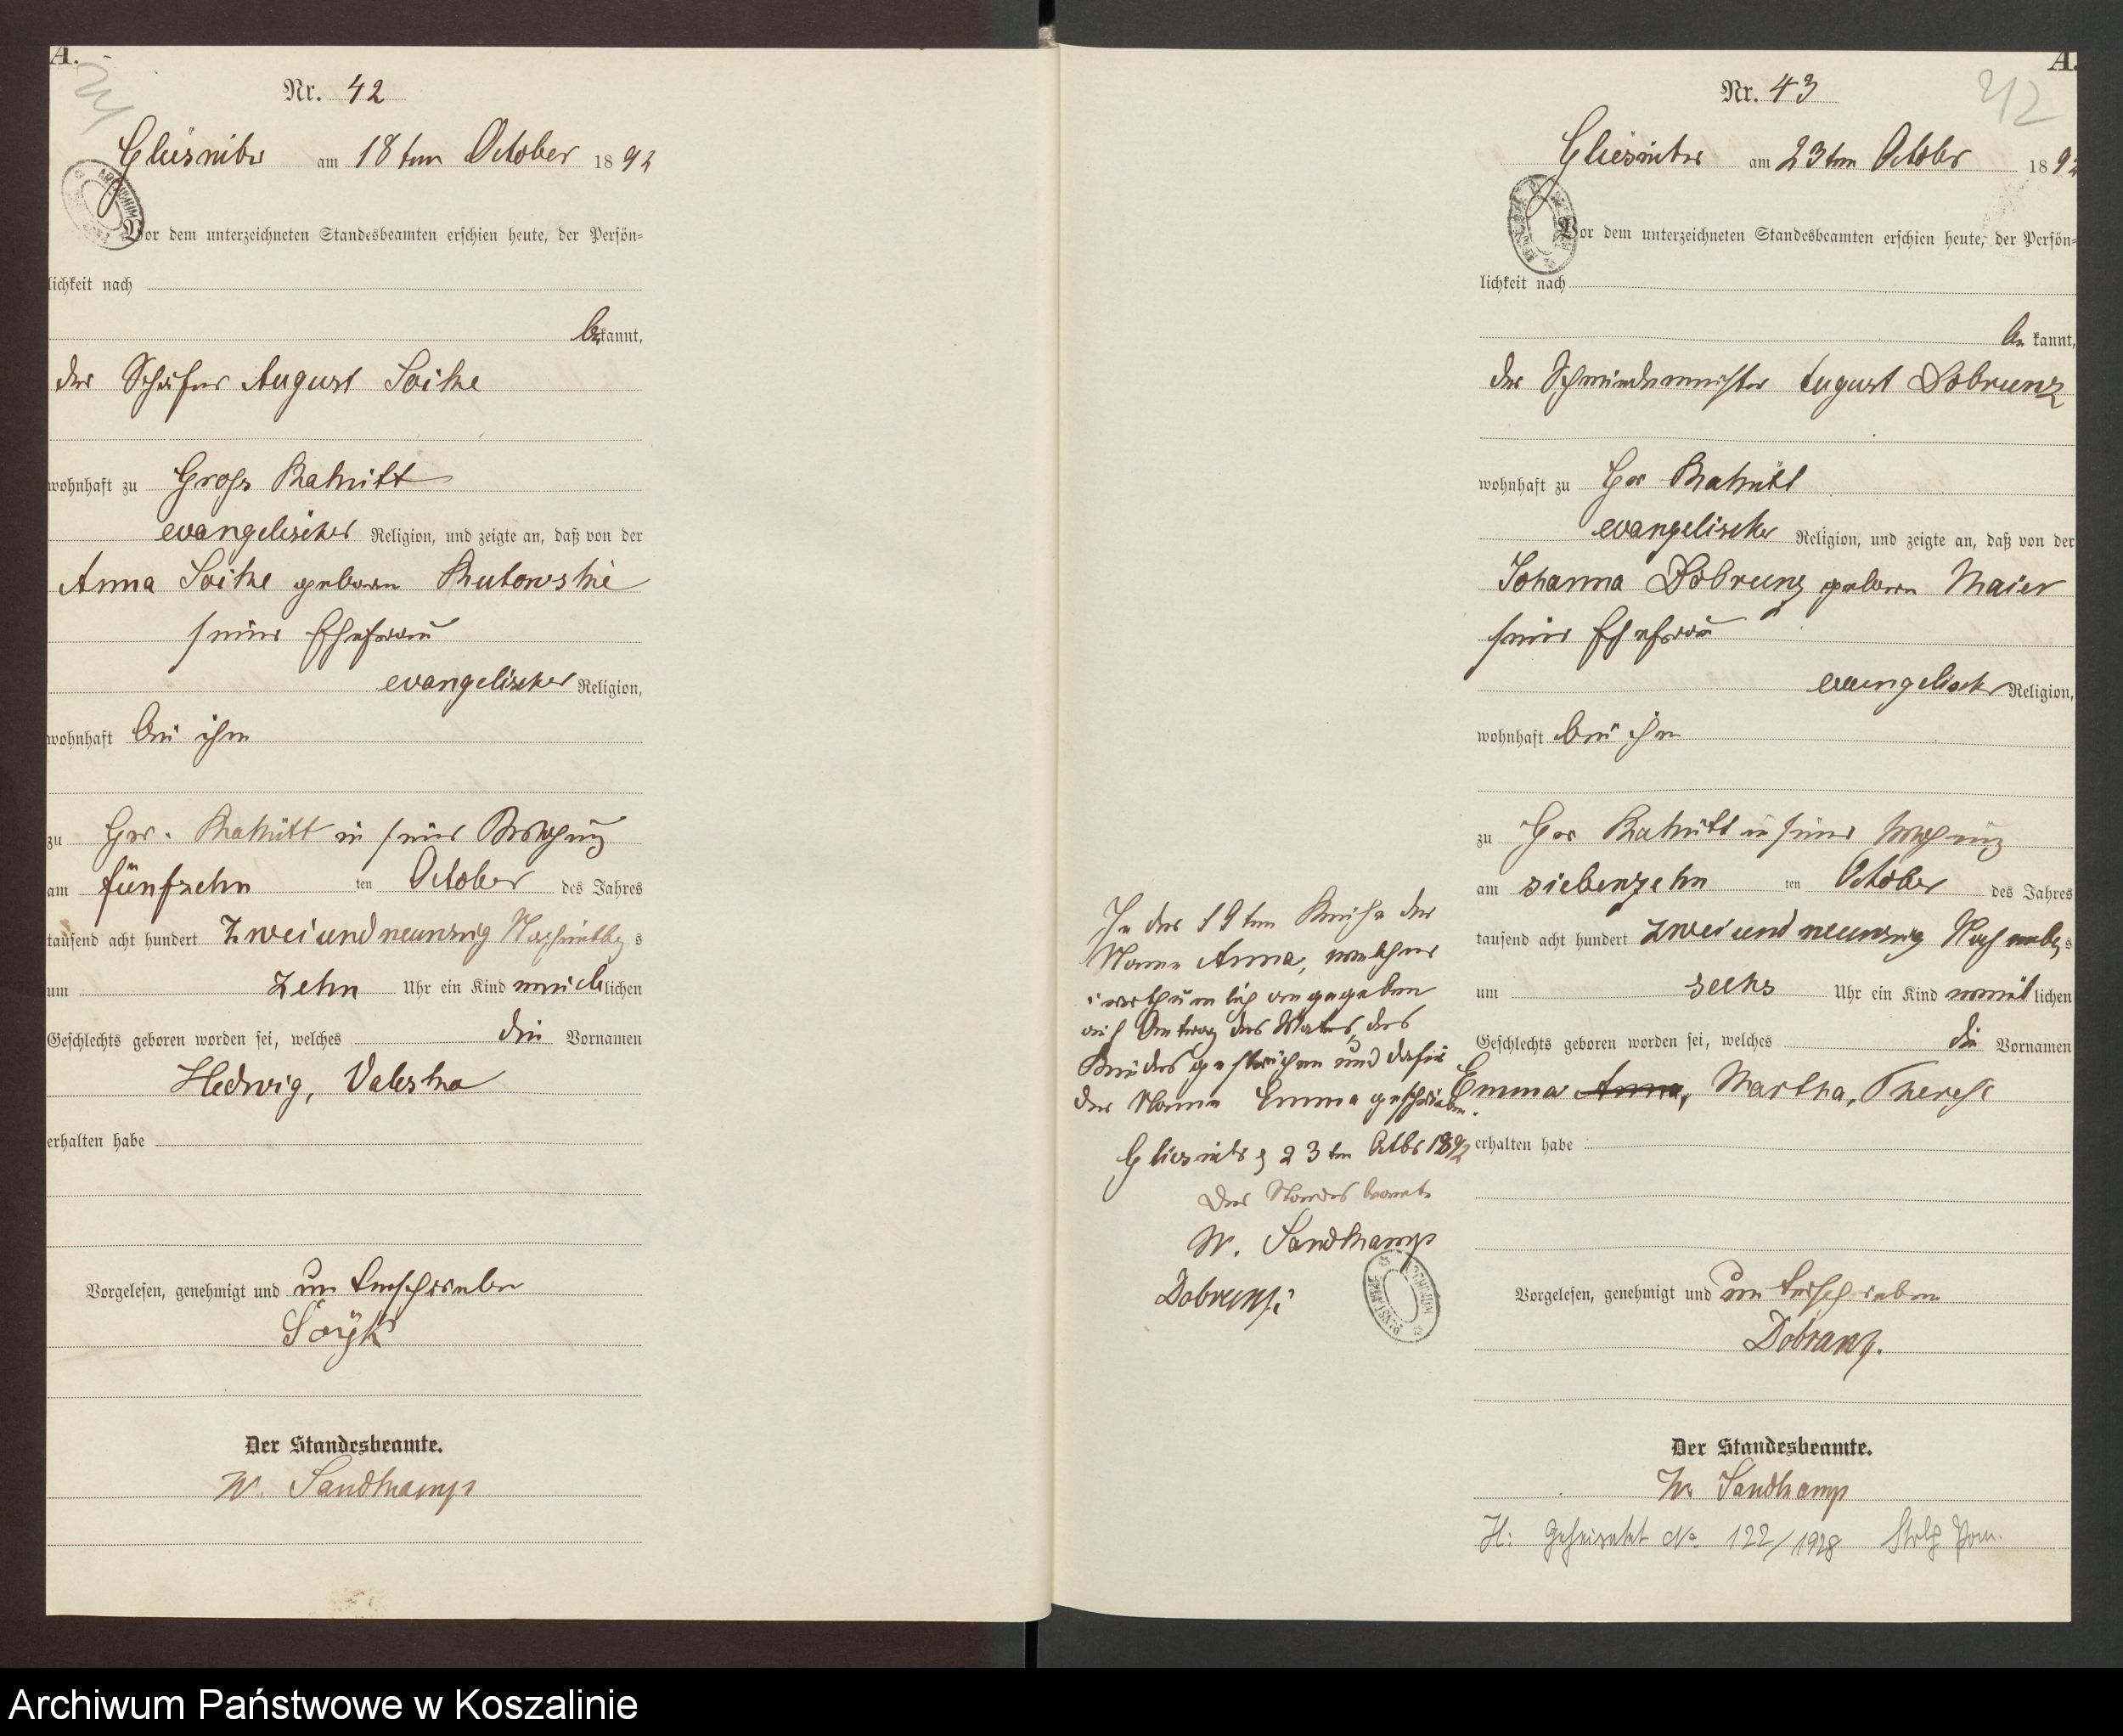 A.
Nr. 42
am 18ten October 1892
Vor dem unterzeichneten Standesbeamten erschien heute, der Persön-
lichkeit nach
bekannt,
der Schäfer August Soike
wohnhaft zu Gross Rakitt
evangelischer Religion, und zeigte an, daß von der
Anna Soike geborene Rutowskie
seiner Ehefrau
evangelischer Religion,
wohnhaft bei ihm
zu Gr. Rakitt in seiner Wohnung
am fünfzehn ten October des Jahres
tausend acht hundert zweiundneunzig Nachmittags
um zehn Uhr ein Kind weiblichen
Geschlechts geboren worden sei, welches die Vornamen
Hedwig, Valeska
erhalten habe
Vorgelesen, genehmigt und unterschrieben
Der Standesbeamte.
W. Sandkamp
A.
212
Nr. 43
am 23ten October 1892
Vor dem unterzeichneten Standesbeamten erschien heute, der Persön-
lichkeit nach
bekannt,
der Schmiedemeister August Dobrunz
wohnhaft zu Gr Rakitt
evangelischer Religion, und zeigte an, daß von der
Johanna Dobrunz geborene Maier
seiner Ehefrau
evangelischer Religion,
wohnhaft bei ihm
zu Gr Rakitt in seiner Wohnung
am siebenzehn ten October des Jahres
tausend acht hundert zweiundneunzig Nachmittags
um sechs Uhr ein Kind weiblichen
Geschlechts geboren worden sei, welches die Vornamen
Emma Anna, Martha, Therese
erhalten habe
Vorgelesen, genehmigt und unterschrieben
Dobrunz.
Der Standesbeamte.
W. Sandkamp
H: Geheiratet No 122/1928 Stolp Pom.
In der 19ten Reihe der
Name Anna, welcher
irrthümlich angegeben
auf Antrag des Vaters des
Kindes gestrichen und dafür
der Name Emma geschrieben.
23ten Octbr 1892
Der Standesbeamte
W. Sandkamp
Dobrunz
Archiwum Państwowe w Koszalinie